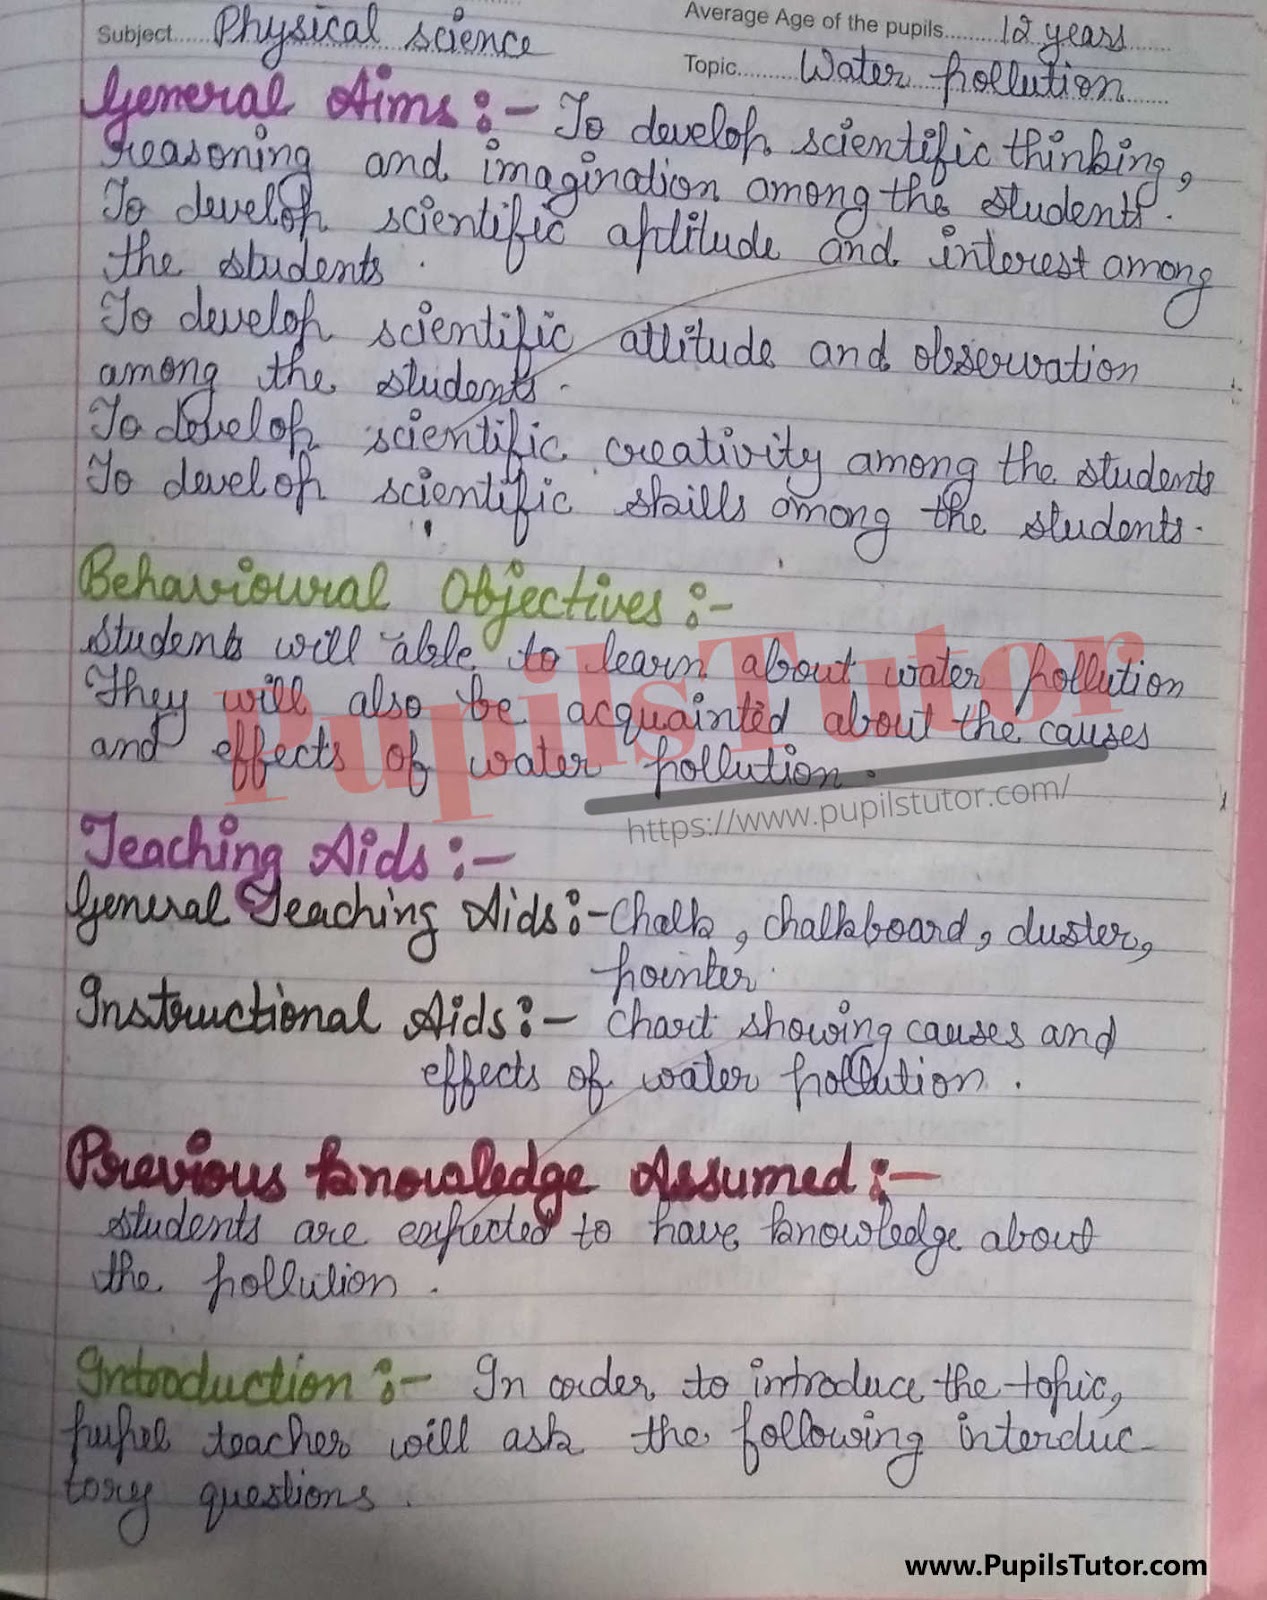 Subject......Physical science
Average Age of the pupils.........12 years......
Topic..........Water pollution......
General Aims :- To develop scientific thinking,
reasoning and imagination among the students.
To develop scientific aptitude and interest among
the students.
To develop scientific attitude and observation
among the students.
To develop scientific creativity among the students
To develop scientific skills among the students.
Behavioural Objectives :-
students will able to learn about water pollution
They will also be acquainted about the causes
and effects of water pollution.
PupilsTutor
https://www.pupilstutor.com/
Teaching Aids :-
General Teaching Aids :- Chalk, chalkboard, duster,
pointer.
Instructional Aids :- Chart showing causes and
effects of water pollution.
Previous knowledge Assumed :-
students are expected to have knowledge about
the pollution.
Introduction :- In order to introduce the topic,
pupil teacher will ask the following interduc-
tory questions.
www.PupilsTutor.com